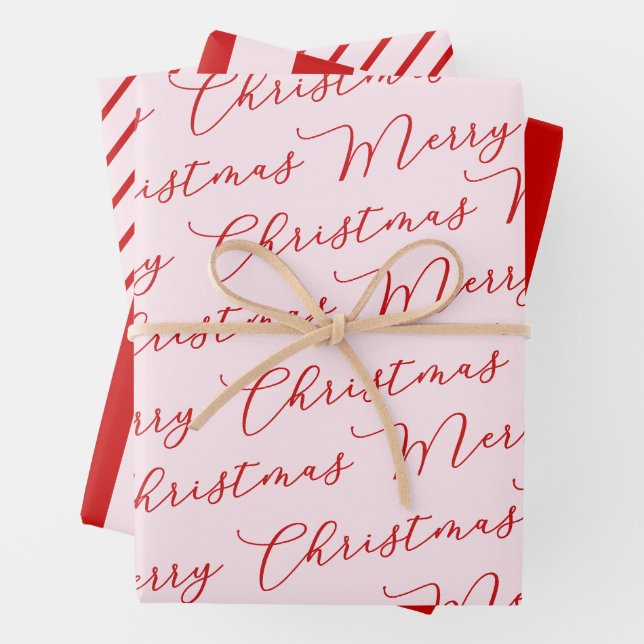 Christmas
Christmas Merry
Christmas
Merry
Christmas
Merry Christmas
Christmas Merry
Merry Christmas
Merry